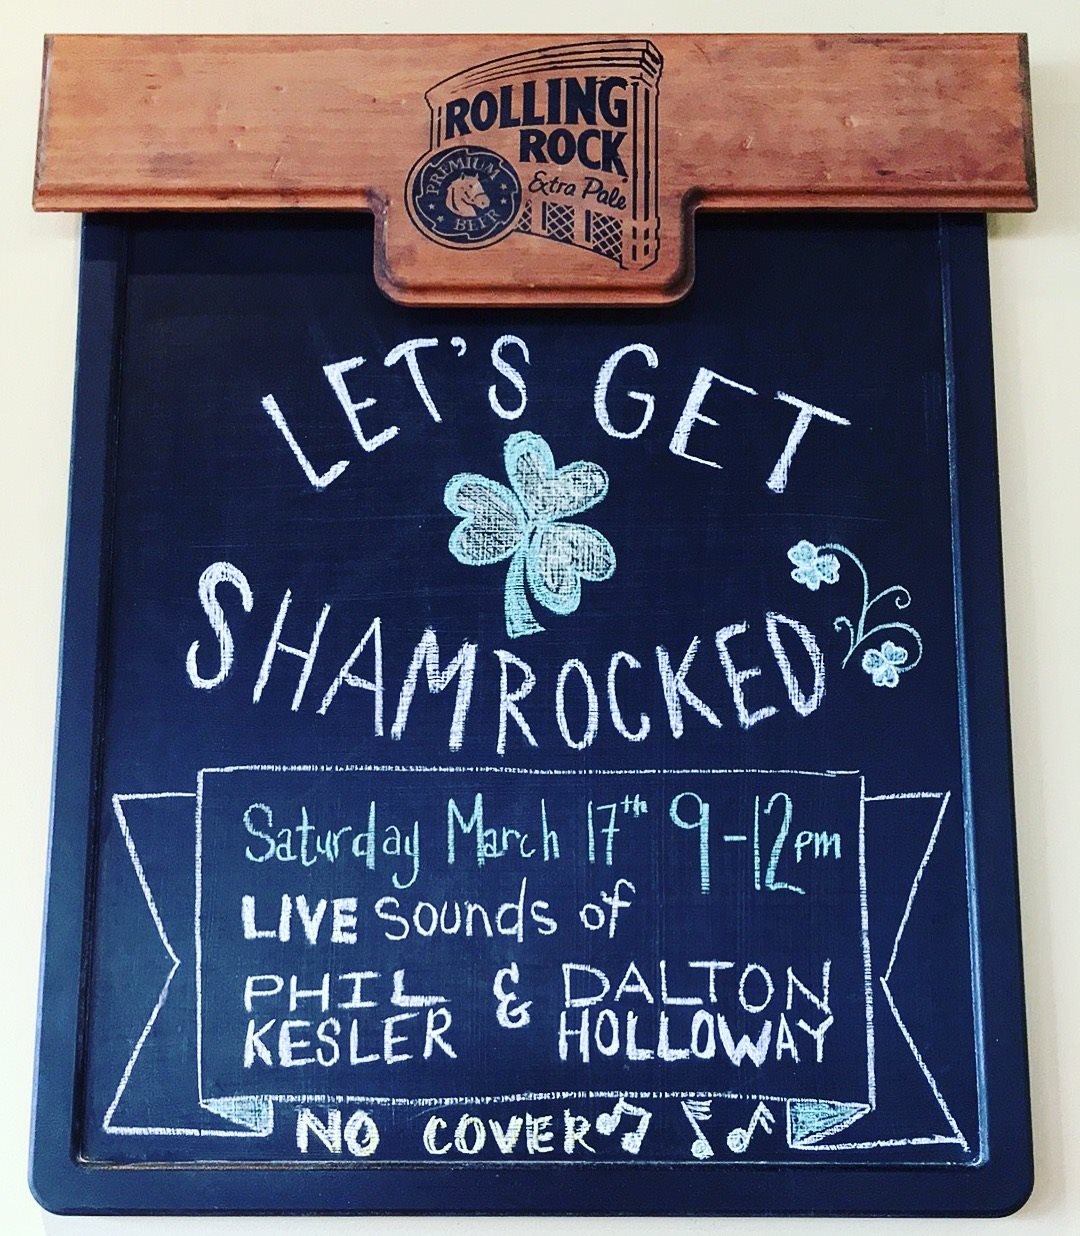 ROLLING
ROCK
Extra Pale
PREMIUM
BEER
LET'S GET
SHAMROCKED
Saturday March 17th 9-12pm
LIVE sounds of
PHIL & DALTON
KESLER HOLLOWAY
NO COVER